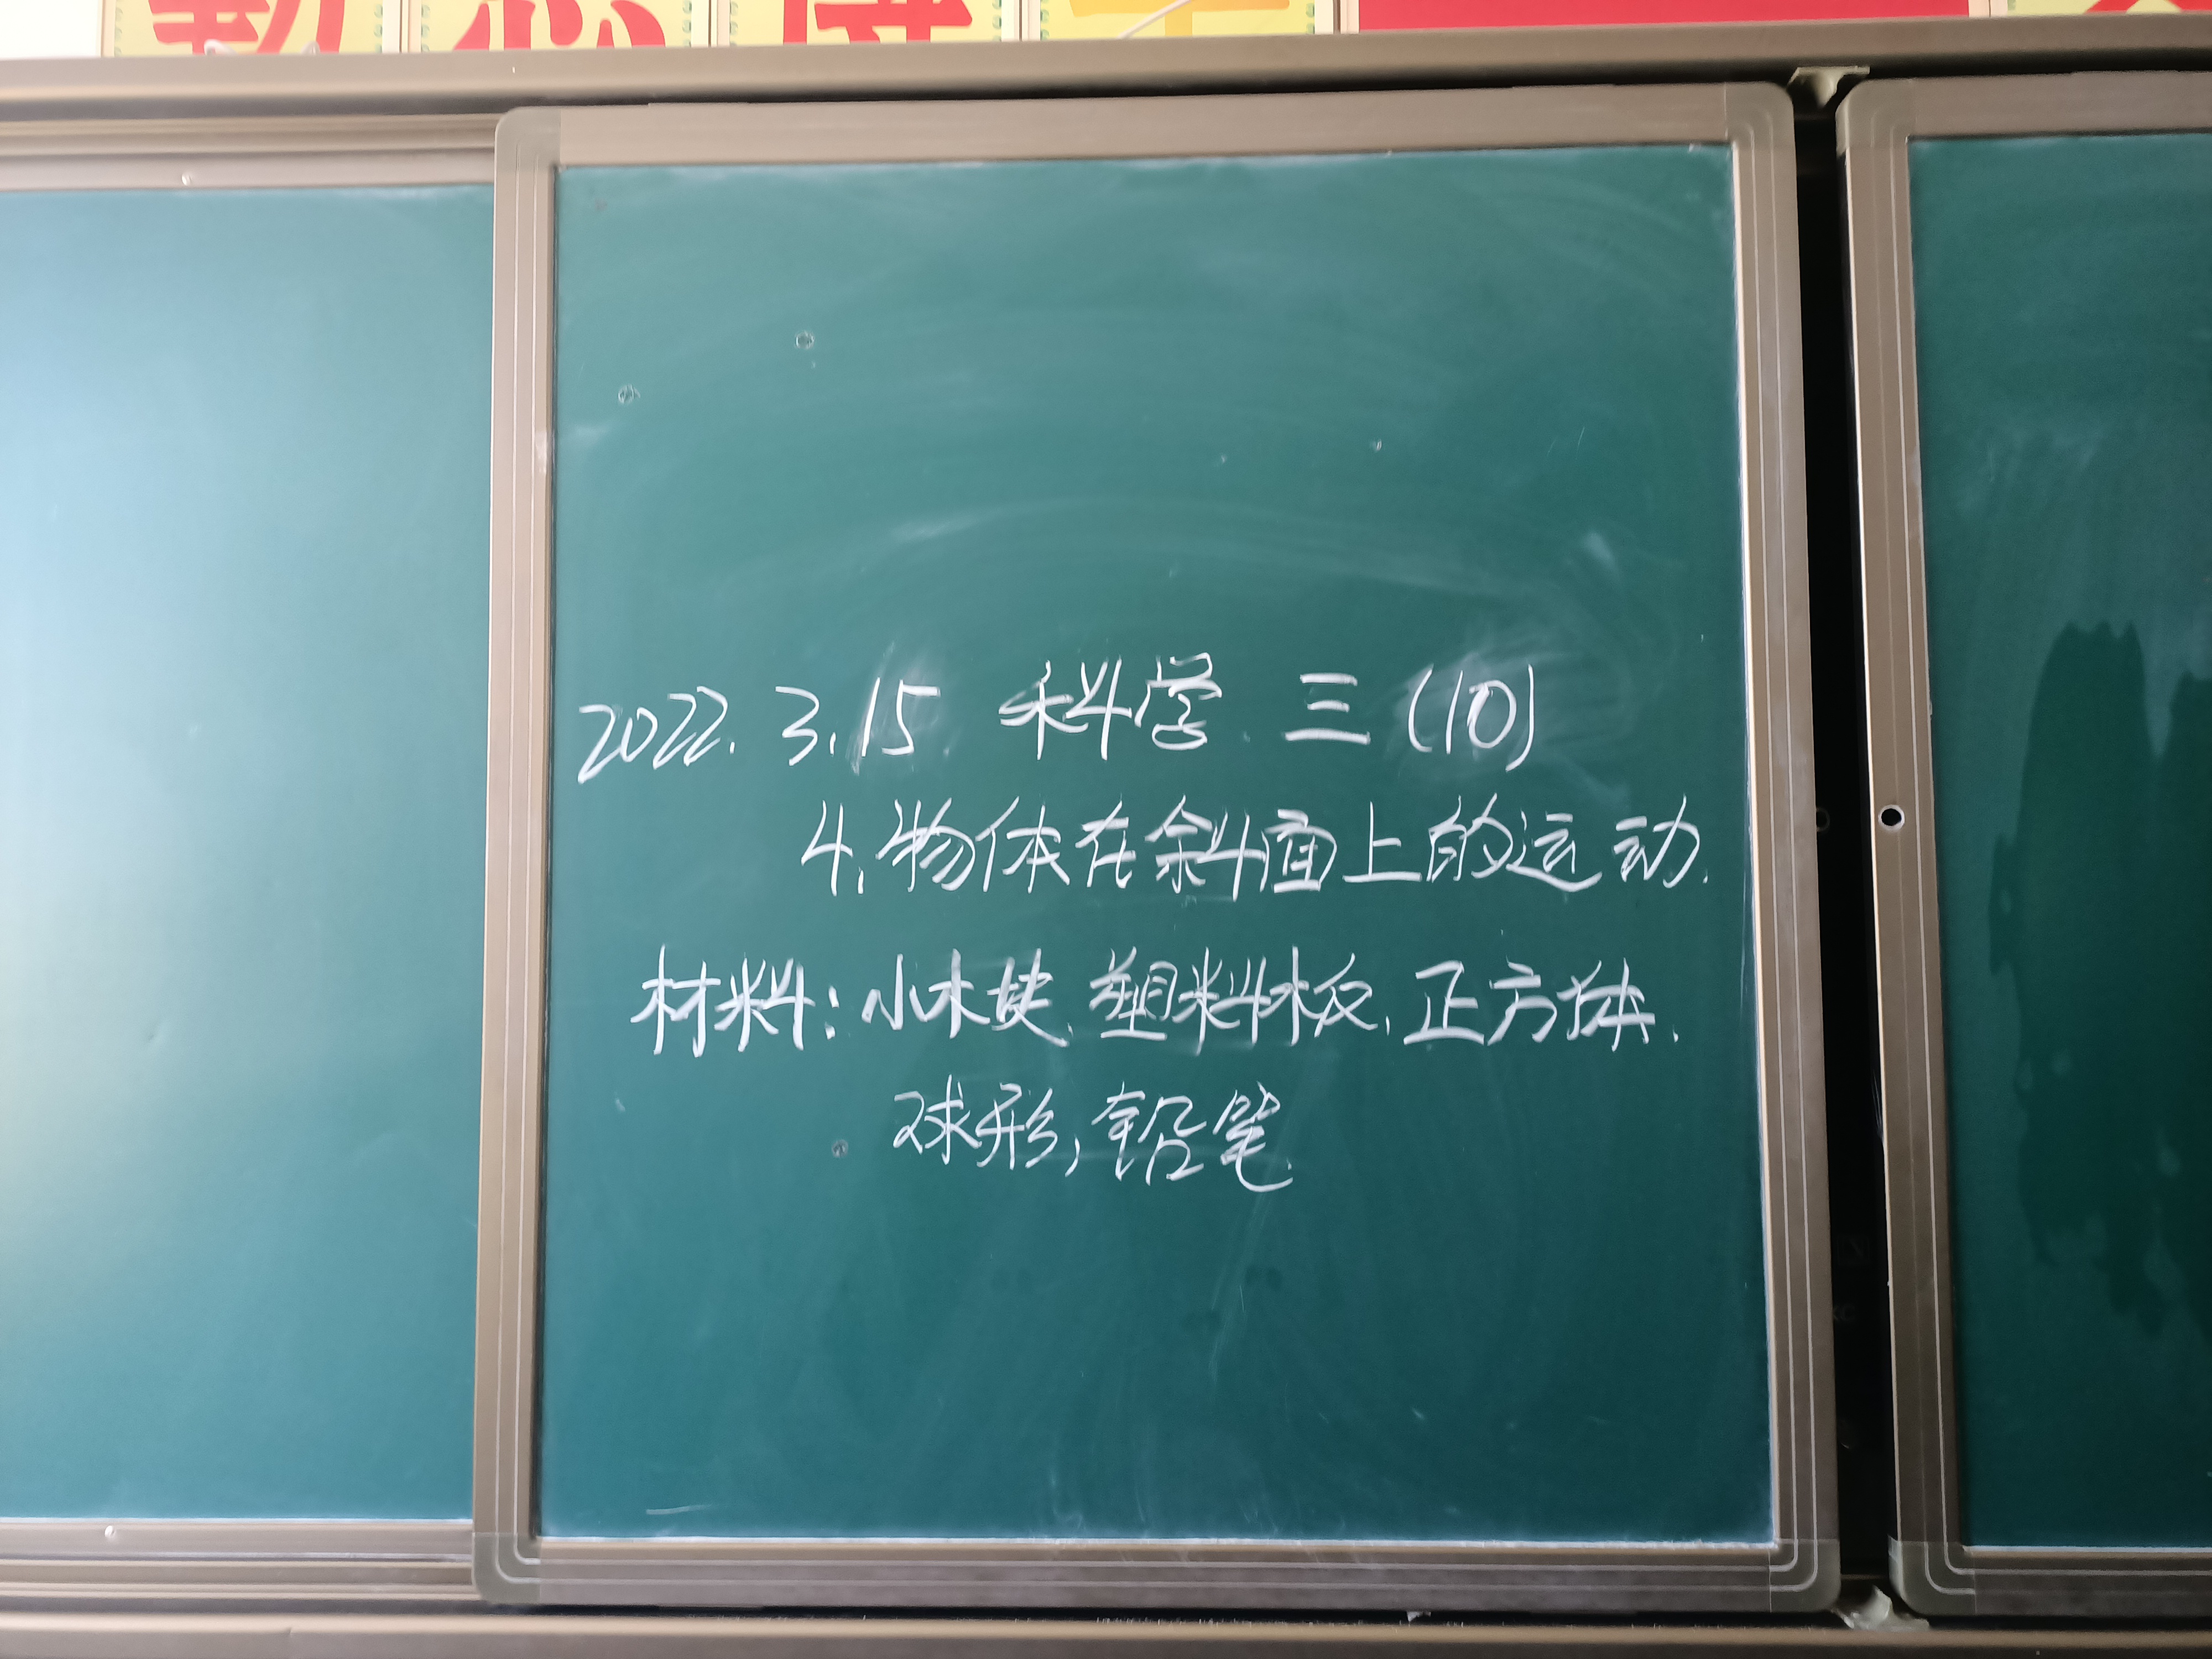 2022.3.15 科学 三(10)
4.物体在斜面上的运动.
材料:小木块、塑料板,正方体、
球形,铅笔